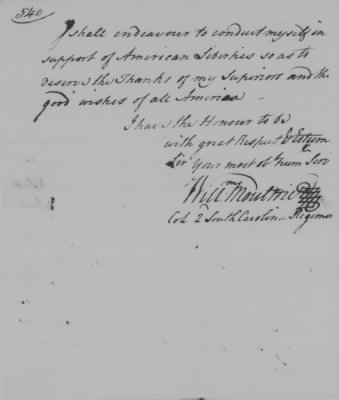 540
I shall endeavour to conduct myself in
support of American Liberties so as to
deserve the Thanks of my Superiors and the
good wishes of all America –
I have the Honour to be
with great Respect & Esteem
Sir Your most Obt. Hum Serv
Willm Moultrie
Col. 2 South Carolina Regimen